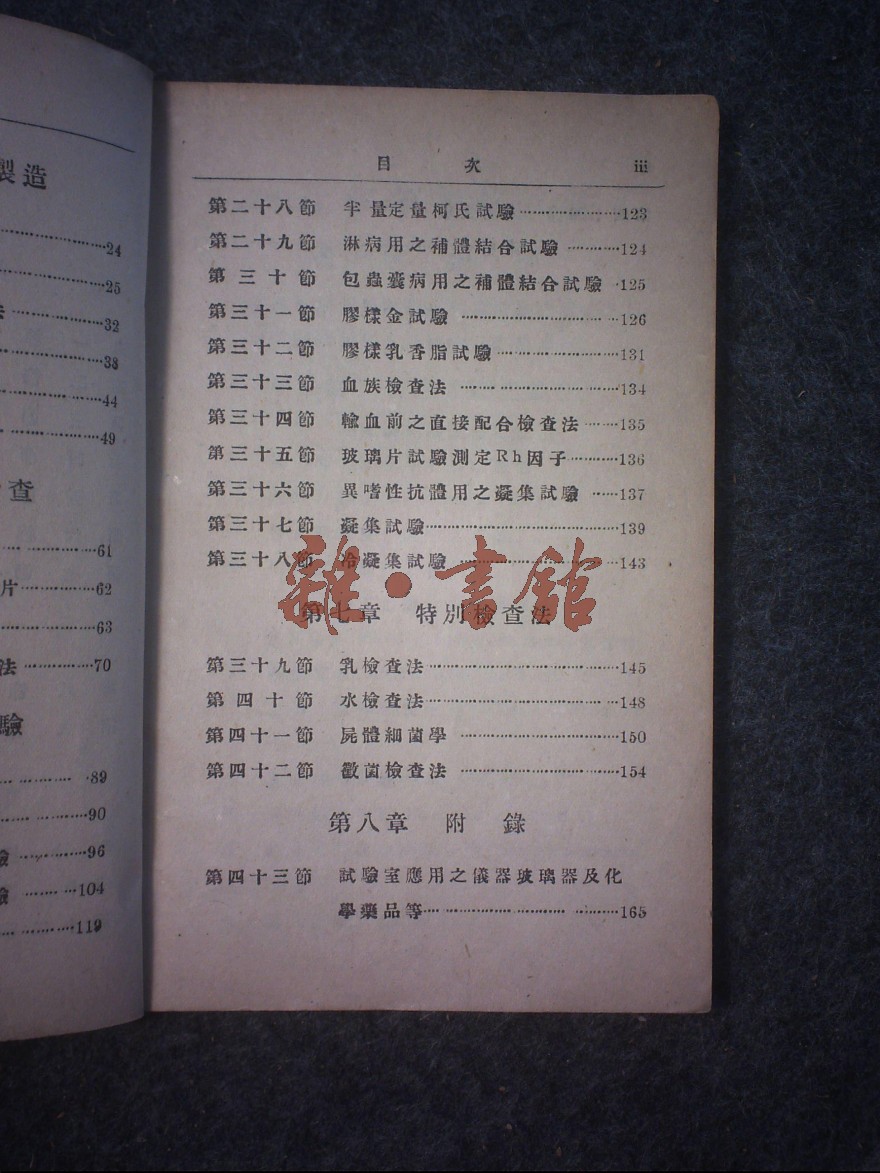 製造
24
25
32
38
44
49
查
61
片……62
63
法……70
驗
89
90
驗……96
驗……104
119
目 次 iii
第二十八節 半量定量柯氏試驗……123
第二十九節 淋病用之補體結合試驗……124
第三十節 包蟲囊病用之補體結合試驗…125
第三十一節 膠樣金試驗……126
第三十二節 膠樣乳香脂試驗……131
第三十三節 血族檢查法……134
第三十四節 輸血前之直接配合檢查法……135
第三十五節 玻璃片試驗測定Rh因子……136
第三十六節 異嗜性抗體用之凝集試驗……137
第三十七節 凝集試驗……139
第三十八節 冷凝集試驗……143
雜·書館
第七章 特別檢查法
第三十九節 乳檢查法……145
第四十節 水檢查法……148
第四十一節 屍體細菌學……150
第四十二節 黴菌檢查法……154
第八章 附錄
第四十三節 試驗室應用之儀器玻璃器及化
學藥品等……165